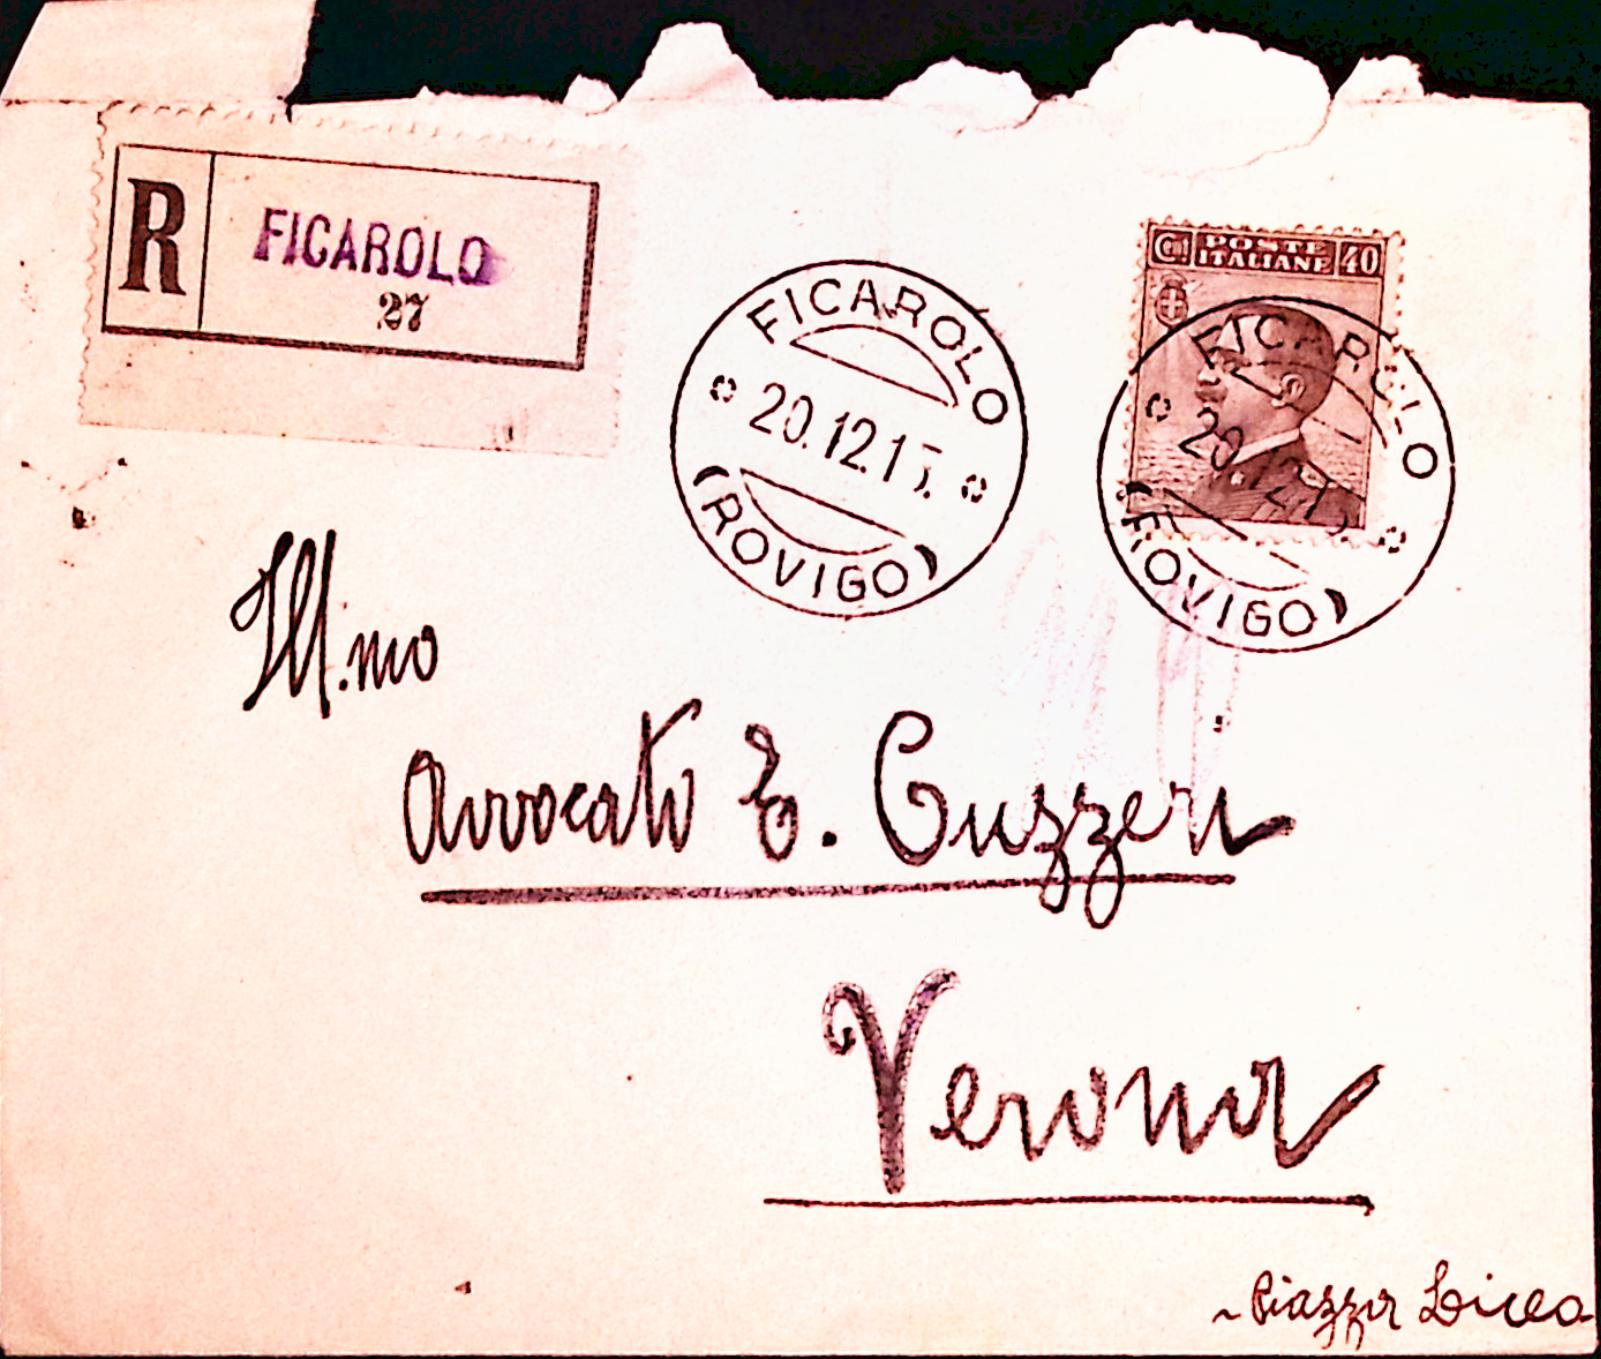 R FICAROLO
27
FICAROLO
20.12.13.
(ROVIGO)
Cent. POSTE ITALIANE 40
FICAROLO
20.12.13.
(ROVIGO)
Ill.mo
Avvocato E. Guzzeri
Verona
~ Piazza Liceo